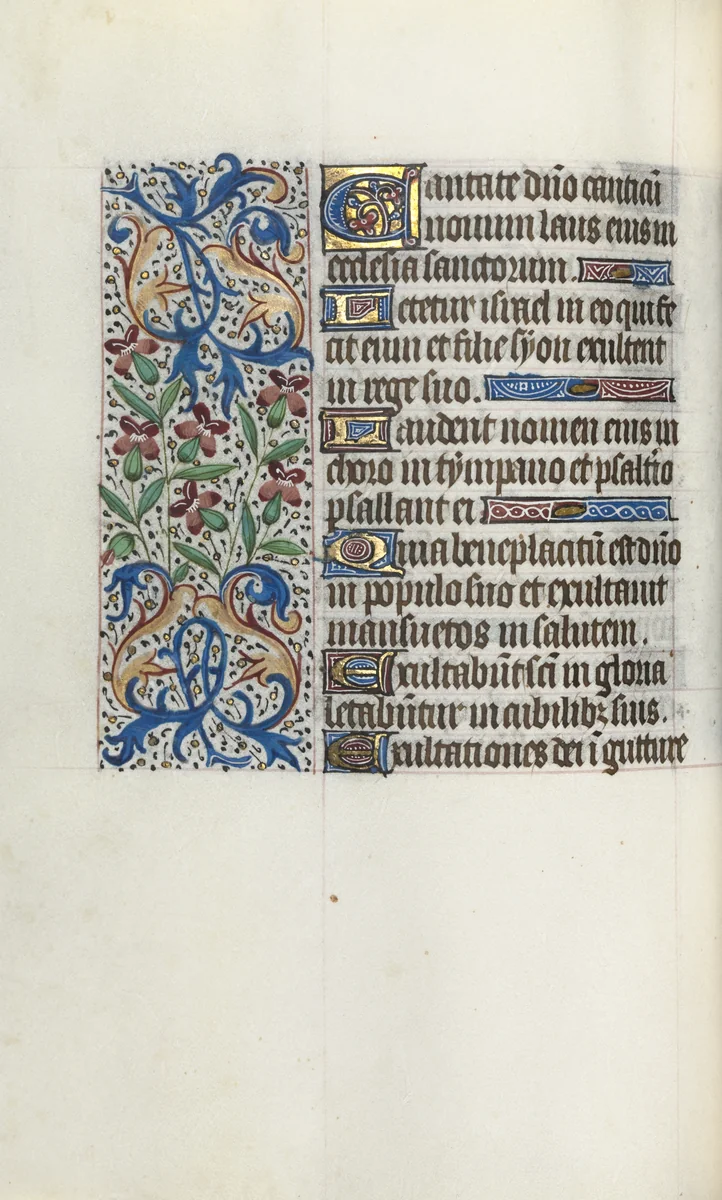 Cantate dño canticũ
nouum laus eius in
ecclesia sanctorum.
Letetur israel in eo qui fe
cit eum et filie syon exultent
in rege suo.
Laudent nomen eius in
choro in tympano et psalt̾io
psallant ei.
Quia beneplacitũ est dño
in populo suo et exultauit
mansuetos in salutem.
Exultabũt scĩ in gloria
letabũtur in cubilibꝫ suis.
Exultationes dei ĩ gutture